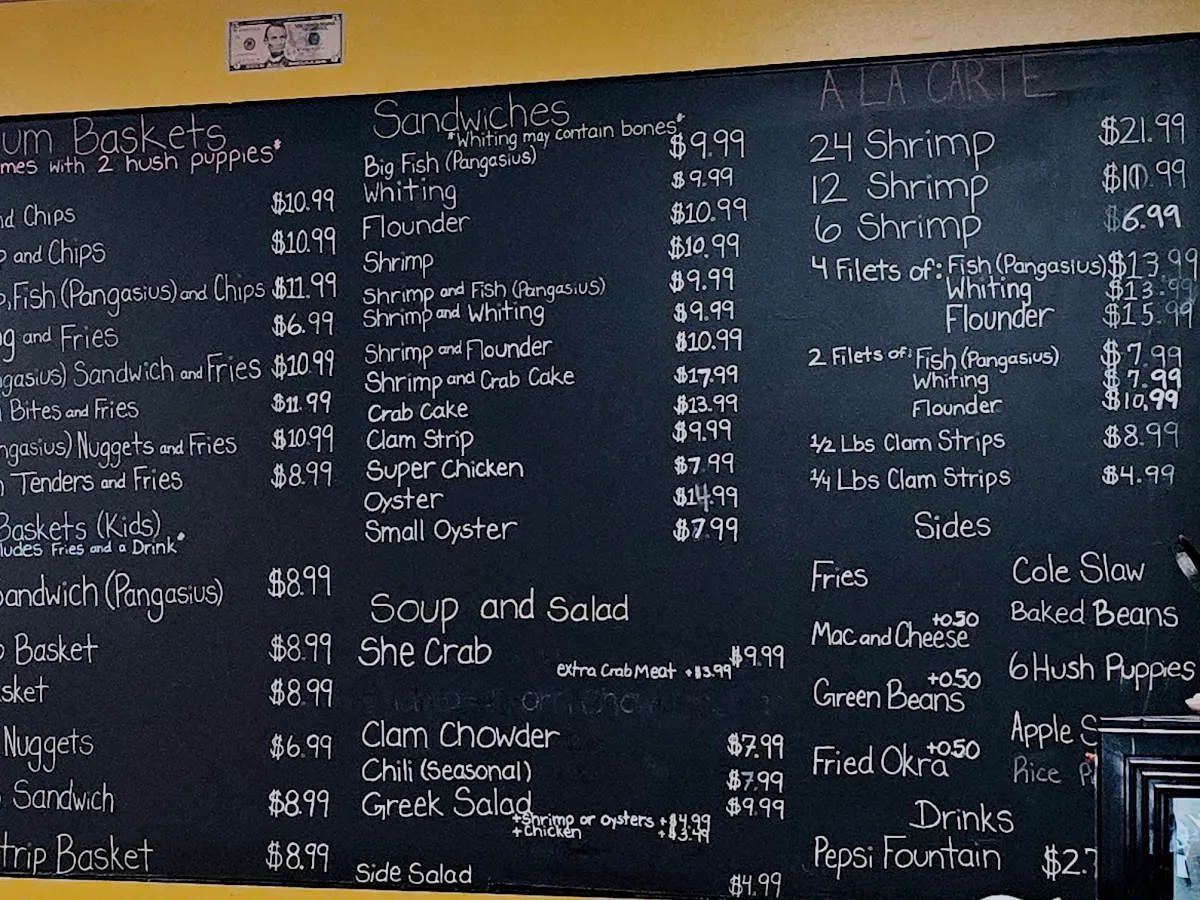 um Baskets
mes with 2 hush puppies*
nd Chips $10.99
p and Chips $10.99
p, Fish (Pangasius) and Chips $11.99
g and Fries $6.99
ngasius) Sandwich and Fries $10.99
n Bites and Fries $11.99
ngasius) Nuggets and Fries $10.99
n Tenders and Fries $8.99
Baskets (Kids)
ludes Fries and a Drink*
Sandwich (Pangasius) $8.99
p Basket $8.99
sket $8.99
Nuggets $6.99
Sandwich $8.99
trip Basket $8.99
Sandwiches
*Whiting may contain bones*
Big Fish (Pangasius) $9.99
Whiting $9.99
Flounder $10.99
Shrimp $10.99
Shrimp and Fish (Pangasius) $9.99
Shrimp and Whiting $9.99
Shrimp and Flounder $10.99
Shrimp and Crab Cake $17.99
Crab Cake $13.99
Clam Strip $9.99
Super Chicken $7.99
Oyster $14.99
Small Oyster $7.99
Soup and Salad
She Crab $9.99
extra Crab Meat +$3.99
Clam Chowder $7.99
Chili (Seasonal) $7.99
Greek Salad $9.99
+Shrimp or oysters +$4.99
+Chicken +$3.49
Side Salad $4.99
A LA CARTE
24 Shrimp $21.99
12 Shrimp $10.99
6 Shrimp $6.99
4 Filets of: Fish (Pangasius) $13.99
Whiting $13.99
Flounder $15.99
2 Filets of: Fish (Pangasius) $7.99
Whiting $7.99
Flounder $10.99
1/2 Lbs Clam Strips $8.99
1/4 Lbs Clam Strips $4.99
Sides
Fries
Mac and Cheese +0.50
Green Beans +0.50
Fried Okra +0.50
Cole Slaw
Baked Beans
6 Hush Puppies
Apple S
Rice
Drinks
Pepsi Fountain $2.7